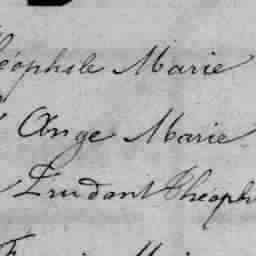 éophile Marie
Ange Marie
Prudant Théoph